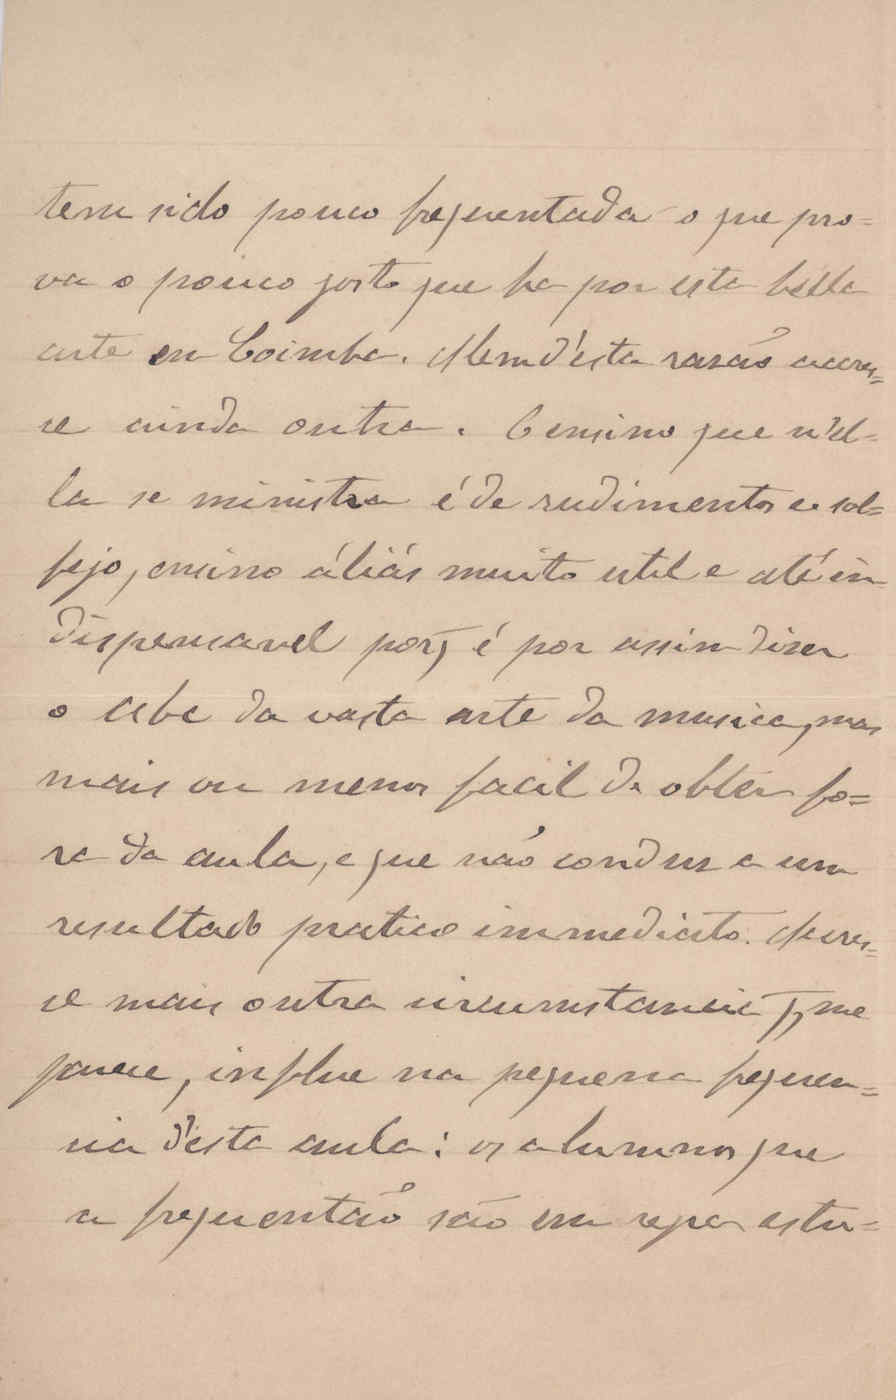 tem sido pouco frequentada o que pro=
va o pouco gosto que ha por esta bella
arte em Coimbra. Alem d'esta rasão accres=
ce ainda outra. O ensino que n'el=
la se ministra é de rudimentos e sol=
fejo, ensino áliás muito util e até in=
dispensavel porq é por assim diser
o abc da vasta arte da musica, mas
mais ou menos facil de obter fo=
ra da aula, e que não condus a um
resultado pratico immediato. Accres=
ce mais outra circumstancia q, me
parece, influe na pequena frequen=
cia d'esta aula: os alumnos que
a frequentão são em regra estu=